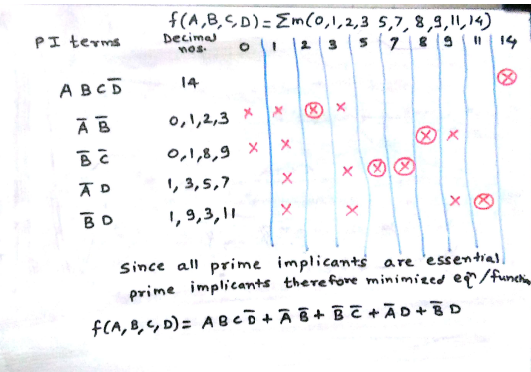 f(A,B,C,D) = Σm(0,1,2,3 5,7, 8,9,11,14)
PI terms Decimal nos. 0 1 2 3 5 7 8 9 11 14
A B C D̅ 14 ⊗
A̅ B̅ 0,1,2,3 × × ⊗ ×
B̅ C̅ 0,1,8,9 × × ⊗ ×
A̅ D 1, 3, 5, 7 × × ⊗ ⊗
B̅ D 1, 9, 3, 11 × × × ⊗
Since all prime implicants are essential
prime implicants therefore minimized eqn/function
f(A, B, C, D) = A B C D̅ + A̅ B̅ + B̅ C̅ + A̅ D + B̅ D